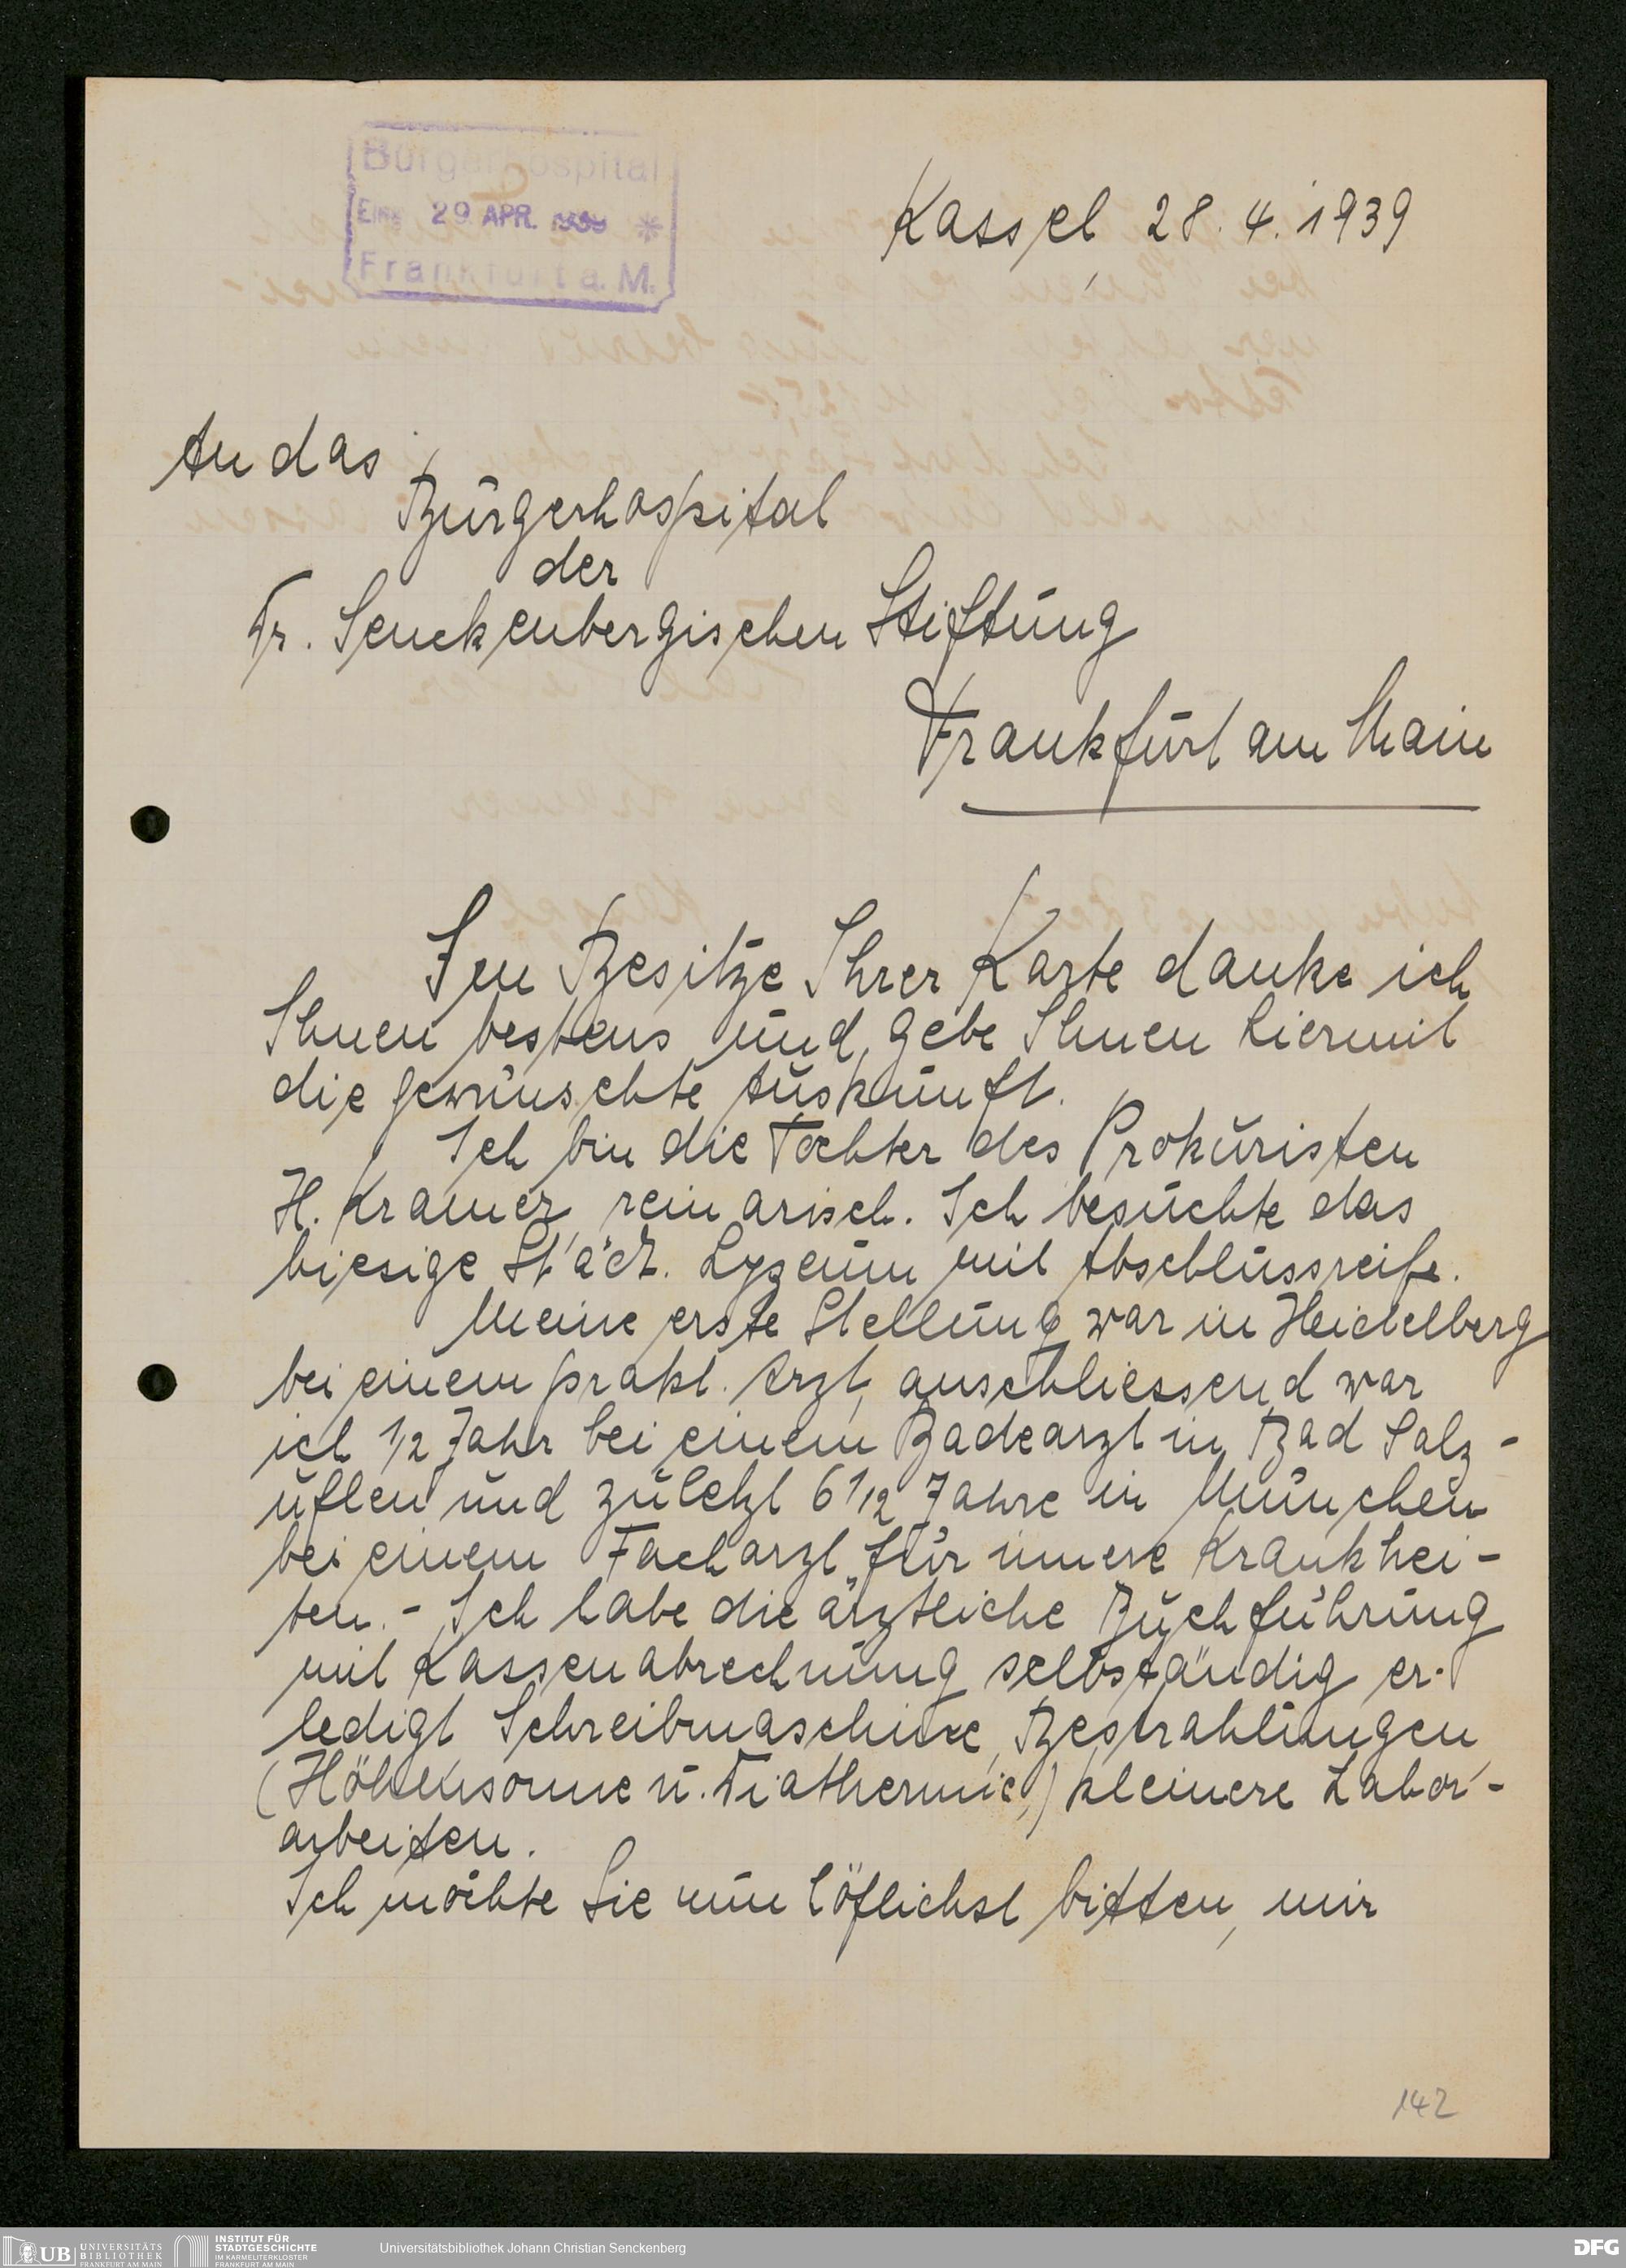 Bürgerhospital
Eing. 29. APR. 1939 *
Frankfurt a. M.
Kassel, 28. 4. 1939
An das
Bürgerhospital
der
Dr. Senckenbergischen Stiftung
Frankfurt am Main
Im Besitze Ihrer Karte danke ich
Ihnen bestens und gebe Ihnen hiermit
die gewünschte Auskunft.
Ich bin die Tochter des Prokuristen
H. Kramer, rein arisch. Ich besuchte das
hiesige Städt. Lyzeum mit Abschlussreife.
Meine erste Stellung war in Heidelberg
bei einem prakt. Arzt, anschliessend war
ich 1/2 Jahr bei einem Badearzt in Bad Salz-
uflen und zuletzt 6 1/2 Jahre in München
bei einem Facharzt für innere Krankhei-
ten. - Ich habe die ärztliche Buchführung
mit Kassenabrechnung selbständig er-
ledigt Schreibmaschine, Bestrahlungen
(Höhensonne u. Diathermie,) kleinere Labor-
arbeiten.
Ich möchte Sie nun höflichst bitten, mir
142
UB UNIVERSITÄTS
BIBLIOTHEK
FRANKFURT AM MAIN
INSTITUT FÜR
STADTGESCHICHTE
IM KARMELITERKLOSTER
FRANKFURT AM MAIN
Universitätsbibliothek Johann Christian Senckenberg
DFG